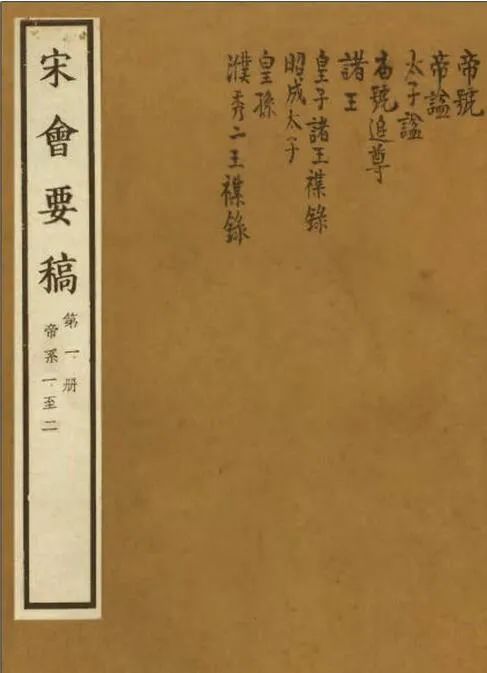 帝號
帝諡
太子諡
號追尊
諸王
皇子諸王襍錄
昭成太子
皇孫
濮秀二王襍錄
宋會要稿
第一册
帝系一至二